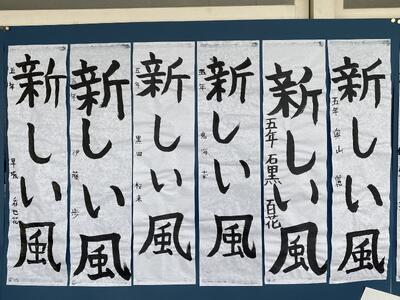 新しい風
五年 畠山
新しい風
五年 石黒 百花
新しい風
五年 鳥海
新しい風
五年 黒田
新しい風
伊藤 歩
新しい風
五年